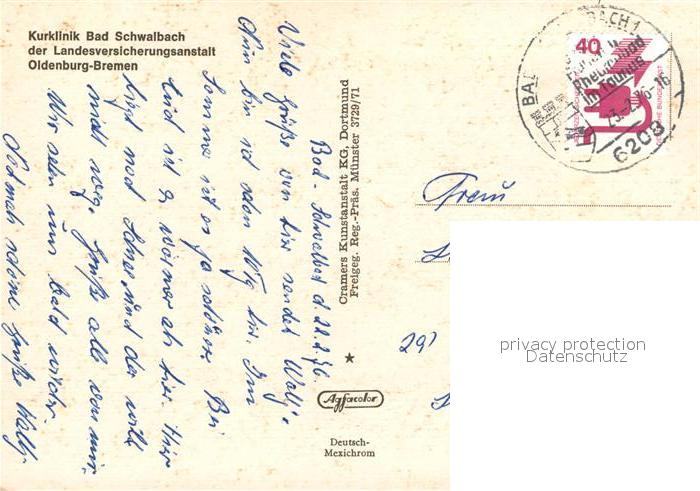 Kurklinik Bad Schwalbach
der Landesversicherungsanstalt
Oldenburg-Bremen
Bad-Schwalbach d. 22.2.76
Viele Grüße von hier sendet Wally.
Nun bin ich schon 10 Tg hier. Im
Sommer ist es ja schöner. Bei
Euch ist es wärmer als hier. Hier
liegt noch Schnee und der will
nicht weg. Grüße alle von mir
Wir sehn uns bald wieder.
Nochmals schöne Grüße Wally.
Cramers Kunstanstalt KG, Dortmund
Freigeg. Reg.-Präs. Münster 3729/71
Agfacolor
Deutsch-
Mexichrom
40
DEUTSCHE BUNDESPOST
Rheuma und
im Taunus
6208
Frau
privacy protection
Datenschutz